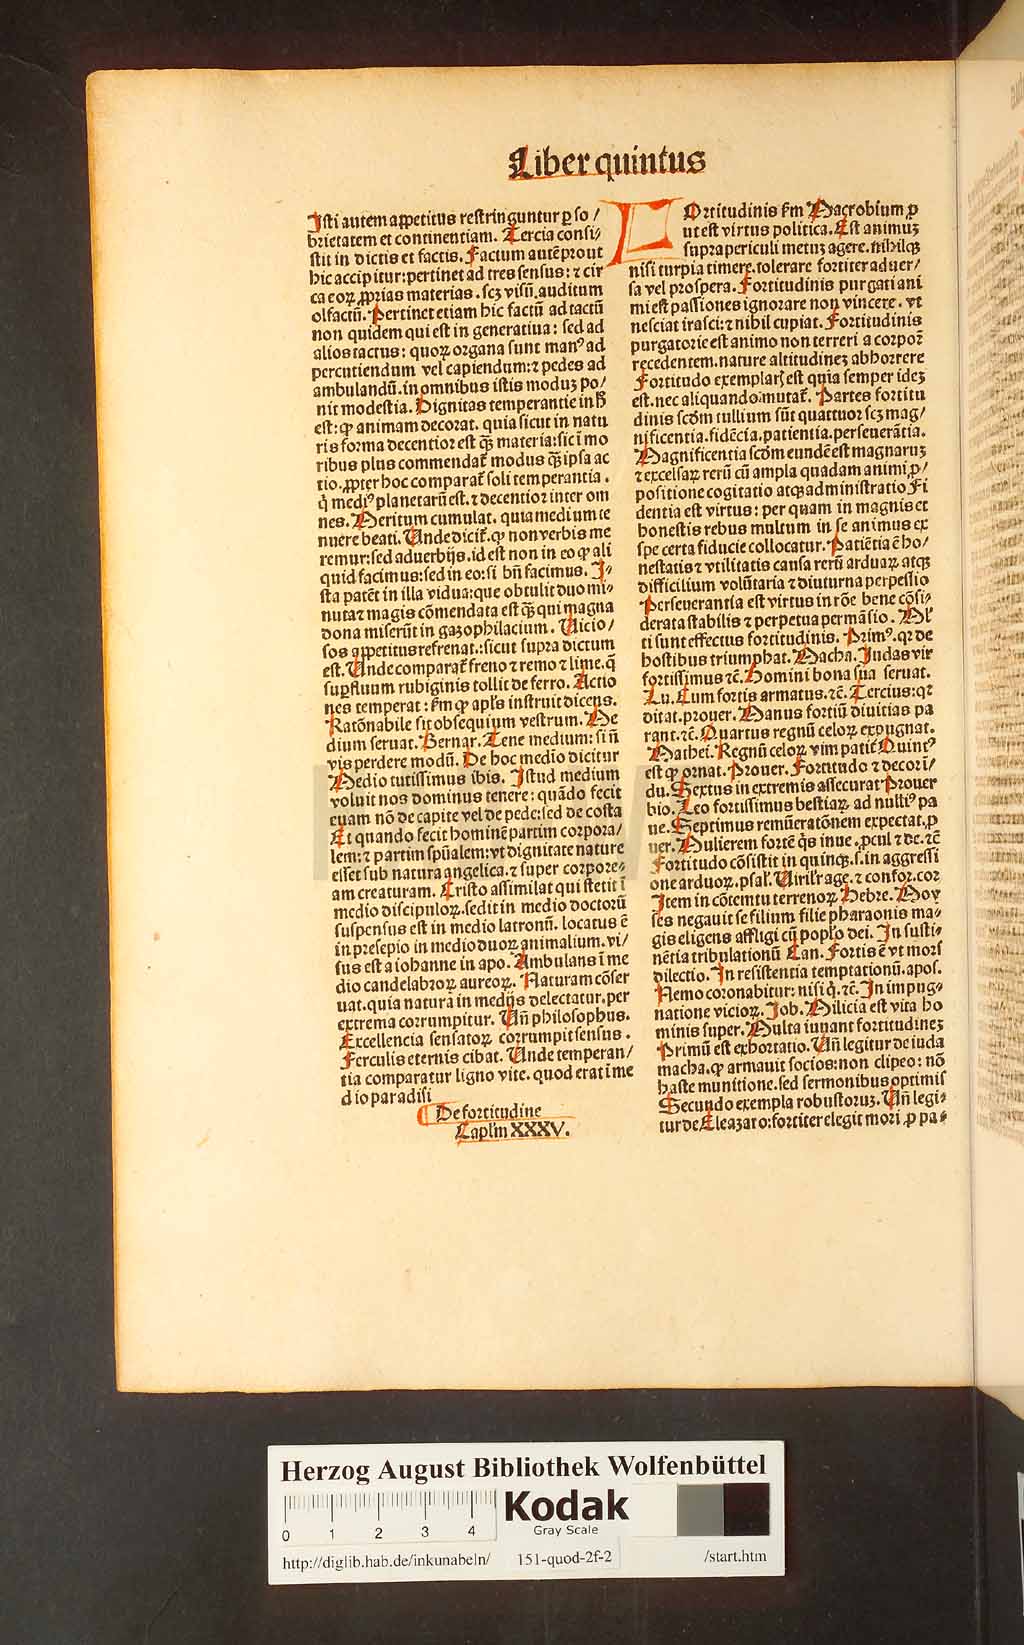 Liber quintus
Isti autem appetitus restringuntur ꝑ so/
brietatem et continentiam. Tercia consi⸗
stit in dictis et factis. Factum autē prout
hic accipitur: pertinet ad tres sensus: ⁊ cir
ca eoꝝ ꝓprias materias. scꝫ visū, auditum
olfactū. Pertinet etiam hic factū ad tactū
non quidem qui est in generatiua: sed ad
alios tactus: quoꝝ organa sunt manꝰ ad
percutiendum vel capiendum: ⁊ pedes ad
ambulandū. in omnibus istis moduꝫ po/
nit modestia. Dignitas temperantie in
est: ꝙ animam decorat. quia sicut in natu
ris forma decentior est q̄ꝫ materia: sic ī mo
ribus plus commendat̄ modus q̄ꝫ ipsa ac
tio. ꝓpter hoc comparat̄ soli temperantia.
q̇ mediꝰ planetarū est. ⁊ decentior inter om
nes. Meritum cumulat. quia medium te
nuere beati. Unde dicit̄. ꝙ non verbis me
remur: sed aduerbijs. id est non in eo ꝙ ali
quid facimus: sed in eo: si bn̄ facimus. I⸗
sta patēt in illa vidua: que obtulit duo mi⸗
nuta: ⁊ magis cōmendata est q̄ꝫ qui magna
dona miserūt in gazophilacium. Uicio/
sos appetitus refrenat.: sicut supra dictum
est. Unde comparat̄ freno ⁊ remo ⁊ lime. q̄
suꝑfluum rubiginis tollit de ferro. Actio
nes temperat: fm ꝙ apl's instruit dicens.
Ratōnabile sit obsequium vestrum. Me
dium seruat. Bernar. Tene medium: si n̄
vis perdere modū. De hoc medio dicitur
Medio tutissimus ibis. Istud medium
voluit nos dominus tenere: quādo fecit
euam nō de capite vel de pede: sed de costa
Et quando fecit hominē partim corpora/
lem: ⁊ partim spūalem: vt dignitate nature
esset sub natura angelica. ⁊ super corpore⸗
am creaturam. Cristo assimilat qui stetit ī
medio discipuloꝝ. sedit in medio doctorū
suspensus est in medio latronū. locatus ē
in presepio in medio duoꝝ animalium. vi/
sus est a iohanne in apo. Ambulans ī me
dio candelabroꝝ aureoꝝ. Naturam cōser
uat. quia natura in medijs delectatur. per
extrema corrumpitur. Un̄ philosophus.
Excellencia sensatoꝝ corrumpit sensus.
Ferculis eternis cibat. Unde temperan/
tia comparatur ligno vite. quod erat ī me
dio paradisi
De fortitudine
Capl'm XXXV.
Ortitudinis fm Macrobium ꝑ
ut est virtus politica. Est animuꝫ
supra periculi metuꝫ agere. nihilqꝫ
nisi turpia timere. tolerare fortiter aduer/
sa vel prospera. Fortitudinis purgati ani
mi est passiones ignorare non vincere. vt
nesciat irasci: ⁊ nihil cupiat. Fortitudinis
purgatorie est animo non terreri a corpoꝝ
recedentem. nature altitudineꝫ abhorrere
Fortitudo exemplar̄ est quia semper ideꝫ
est. nec aliquando mutat̄. Partes fortitu
dinis scdm tullium sūt quattuor scꝫ mag/
nificentia. fidēcia. patientia. perseuerātia.
Magnificentia scdm eundē est magnaruꝫ
⁊ excelsaꝝ rerū cū ampla quadam animi ꝓ/
positione cogitatio atqꝫ administratio Fi
dentia est virtus: per quam in magnis et
honestis rebus multum in se animus ex
spe certa fiducie collocatur. Patiētia ē ho/
nestatis ⁊ vtilitatis causa rerū arduaꝝ atqꝫ
difficilium volūtaria ⁊ diuturna perpessio
Perseuerantia est virtus in rōe bene cōsi⸗
derata stabilis ⁊ perpetua permāsio. Ml'
ti sunt effectus fortitudinis. Primꝰ. qꝛ de
hostibus triumphat. Macha. Iudas vir
fortissimus ⁊c̄. Homini bona sua seruat.
Lu. Cum fortis armatus. ⁊c̄. Tercius: qꝛ
ditat. prouer. Manus fortiū diuitias pa
rant. ⁊c̄. Quartus regnū celoꝝ expugnat.
Mathei. Regnū celoꝝ vim patit̄ Quintꝰ
est ꝙ ornat. Prouer. Fortitudo ⁊ decor ī/
du. Sextus in extremis assecurat Prouer
bio. Leo fortissimus bestiaꝝ ad nulliꝰ pa
ue. Septimus remūeratōnem expectat. ꝓ
uer. Mulierem fortē q̄s inue. ꝓcul ⁊ de. ⁊c̄
Fortitudo cōsistit in quinqꝫ. s. in aggressi
one arduoꝝ. psal'. Uiril'r age. ⁊ confor. cor
Item in cōtemtu terrenoꝝ Hebre. Moy
ses negauit se filium filie pharaonis ma⸗
gis eligens affligi cū popl'o dei. In susti⸗
nētia tribulationū Can. Fortis ē vt mors
dilectio. In resistentia temptationū. apos.
Nemo coronabitur: nisi q̇. ⁊c̄. In impug⸗
natione vicioꝝ. Job. Milicia est vita ho
minis super. Multa iuuant fortitudineꝫ
Primū est exhortatio. Un̄ legitur de iuda
macha. ꝙ armauit socios: non clipeo: nō
haste munitione. sed sermonibus optimis
Secundo exempla robustoruꝫ. Un̄ legi⸗
tur de Eleazaro: fortiter elegit mori ꝓ pa⸗
Herzog August Bibliothek Wolfenbüttel
0 1 2 3 4
Kodak
Gray Scale
http://diglib.hab.de/inkunabeln/ 151-quod-2f-2 /start.htm